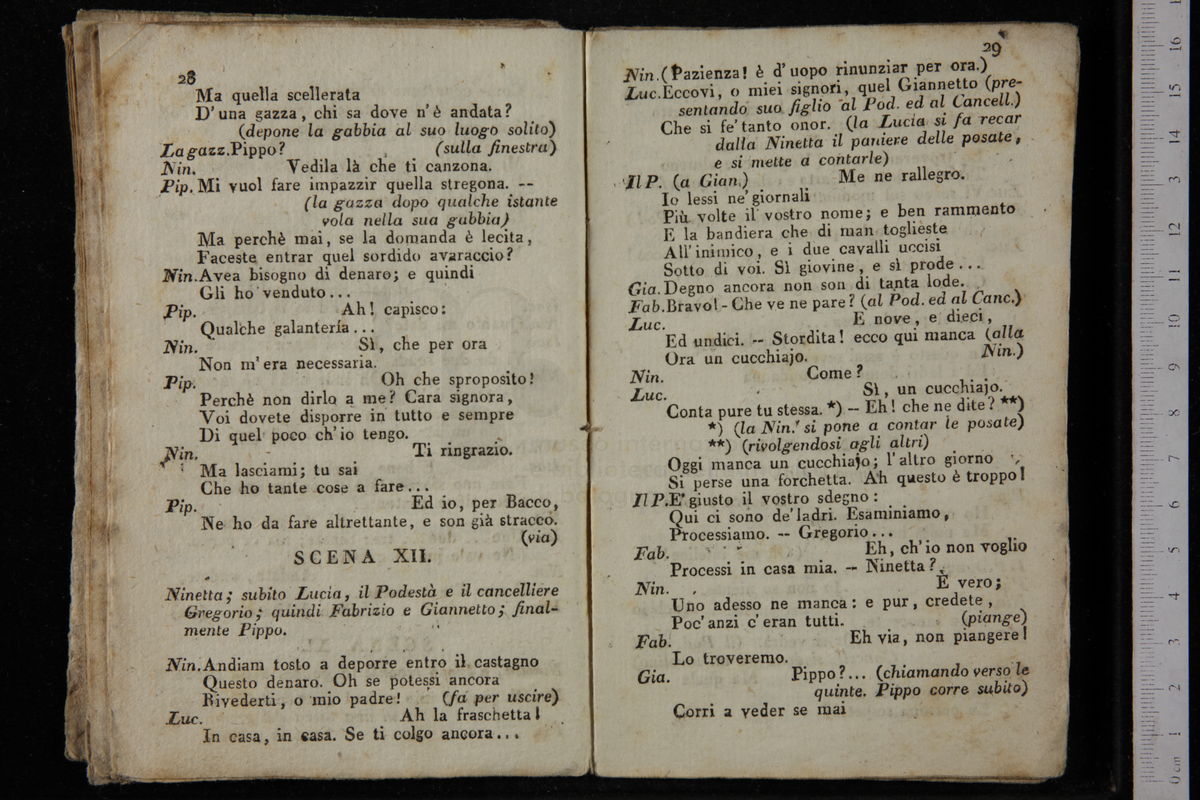 28
Ma quella scellerata
D'una gazza, chi sa dove n'è andata?
(depone la gabbia al suo luogo solito)
La gazz. Pippo? (sulla finestra)
Nin. Vedila là che ti canzona.
Pip. Mi vuol fare impazzir quella stregona. --
(la gazza dopo qualche istante
vola nella sua gabbia)
Ma perchè mai, se la domanda è lecita,
Faceste entrar quel sordido avaraccio?
Nin. Avea bisogno di denaro; e quindi
Gli ho venduto...
Pip. Ah! capisco:
Qualche galantería...
Nin. Sì, che per ora
Non m'era necessaria.
Pip. Oh che sproposito!
Perchè non dirlo a me? Cara signora,
Voi dovete disporre in tutto e sempre
Di quel poco ch'io tengo.
Nin. Ti ringrazio.
Ma lasciami; tu sai
Che ho tante cose a fare...
Pip. Ed io, per Bacco,
Ne ho da fare altrettante, e son già stracco.
(via)
SCENA XII.
Ninetta; subito Lucia, il Podestà e il cancelliere
Gregorio; quindi Fabrizio e Giannetto; final-
mente Pippo.
Nin. Andiam tosto a deporre entro il castagno
Questo denaro. Oh se potessi ancora
Rivederti, o mio padre! (fa per uscire)
Luc. Ah la fraschetta!
In casa, in casa. Se ti colgo ancora...
29
Nin. (Pazienza! è d'uopo rinunziar per ora.)
Luc. Eccovi, o miei signori, quel Giannetto (pre-
sentando suo figlio al Pod. ed al Cancell.)
Che si fe' tanto onor. (la Lucia si fa recar
dalla Ninetta il paniere delle posate,
e si mette a contarle)
Il P. (a Gian.) Me ne rallegro.
Io lessi ne' giornali
Più volte il vostro nome; e ben rammento
E la bandiera che di man toglieste
All'inimico, e i due cavalli uccisi
Sotto di voi. Sì giovine, e sì prode...
Gia. Degno ancora non son di tanta lode.
Fab. Bravo! - Che ve ne pare? (al Pod. ed al Canc.)
Luc. E nove, e dieci,
Ed undici. -- Stordita! ecco qui manca (alla
Ora un cucchiajo. Nin.)
Nin. Come?
Luc. Sì, un cucchiajo.
Conta pure tu stessa. *) -- Eh! che ne dite? **)
*) (la Nin. si pone a contar le posate)
**) (rivolgendosi agli altri)
Oggi manca un cucchiajo; l'altro giorno
Si perse una forchetta. Ah questo è troppo!
Il P. E' giusto il vostro sdegno:
Qui ci sono de' ladri. Esaminiamo,
Processiamo. -- Gregorio...
Fab. Eh, ch'io non voglio
Processi in casa mia. -- Ninetta?
Nin. È vero;
Uno adesso ne manca: e pur, credete,
Poc'anzi c'eran tutti. (piange)
Fab. Eh via, non piangere!
Lo troveremo.
Gia. Pippo?... (chiamando verso le
quinte. Pippo corre subito)
Corri a veder se mai
0 cm 1 2 3 4 5 6 7 8 9 10 11 12 13 14 15 16